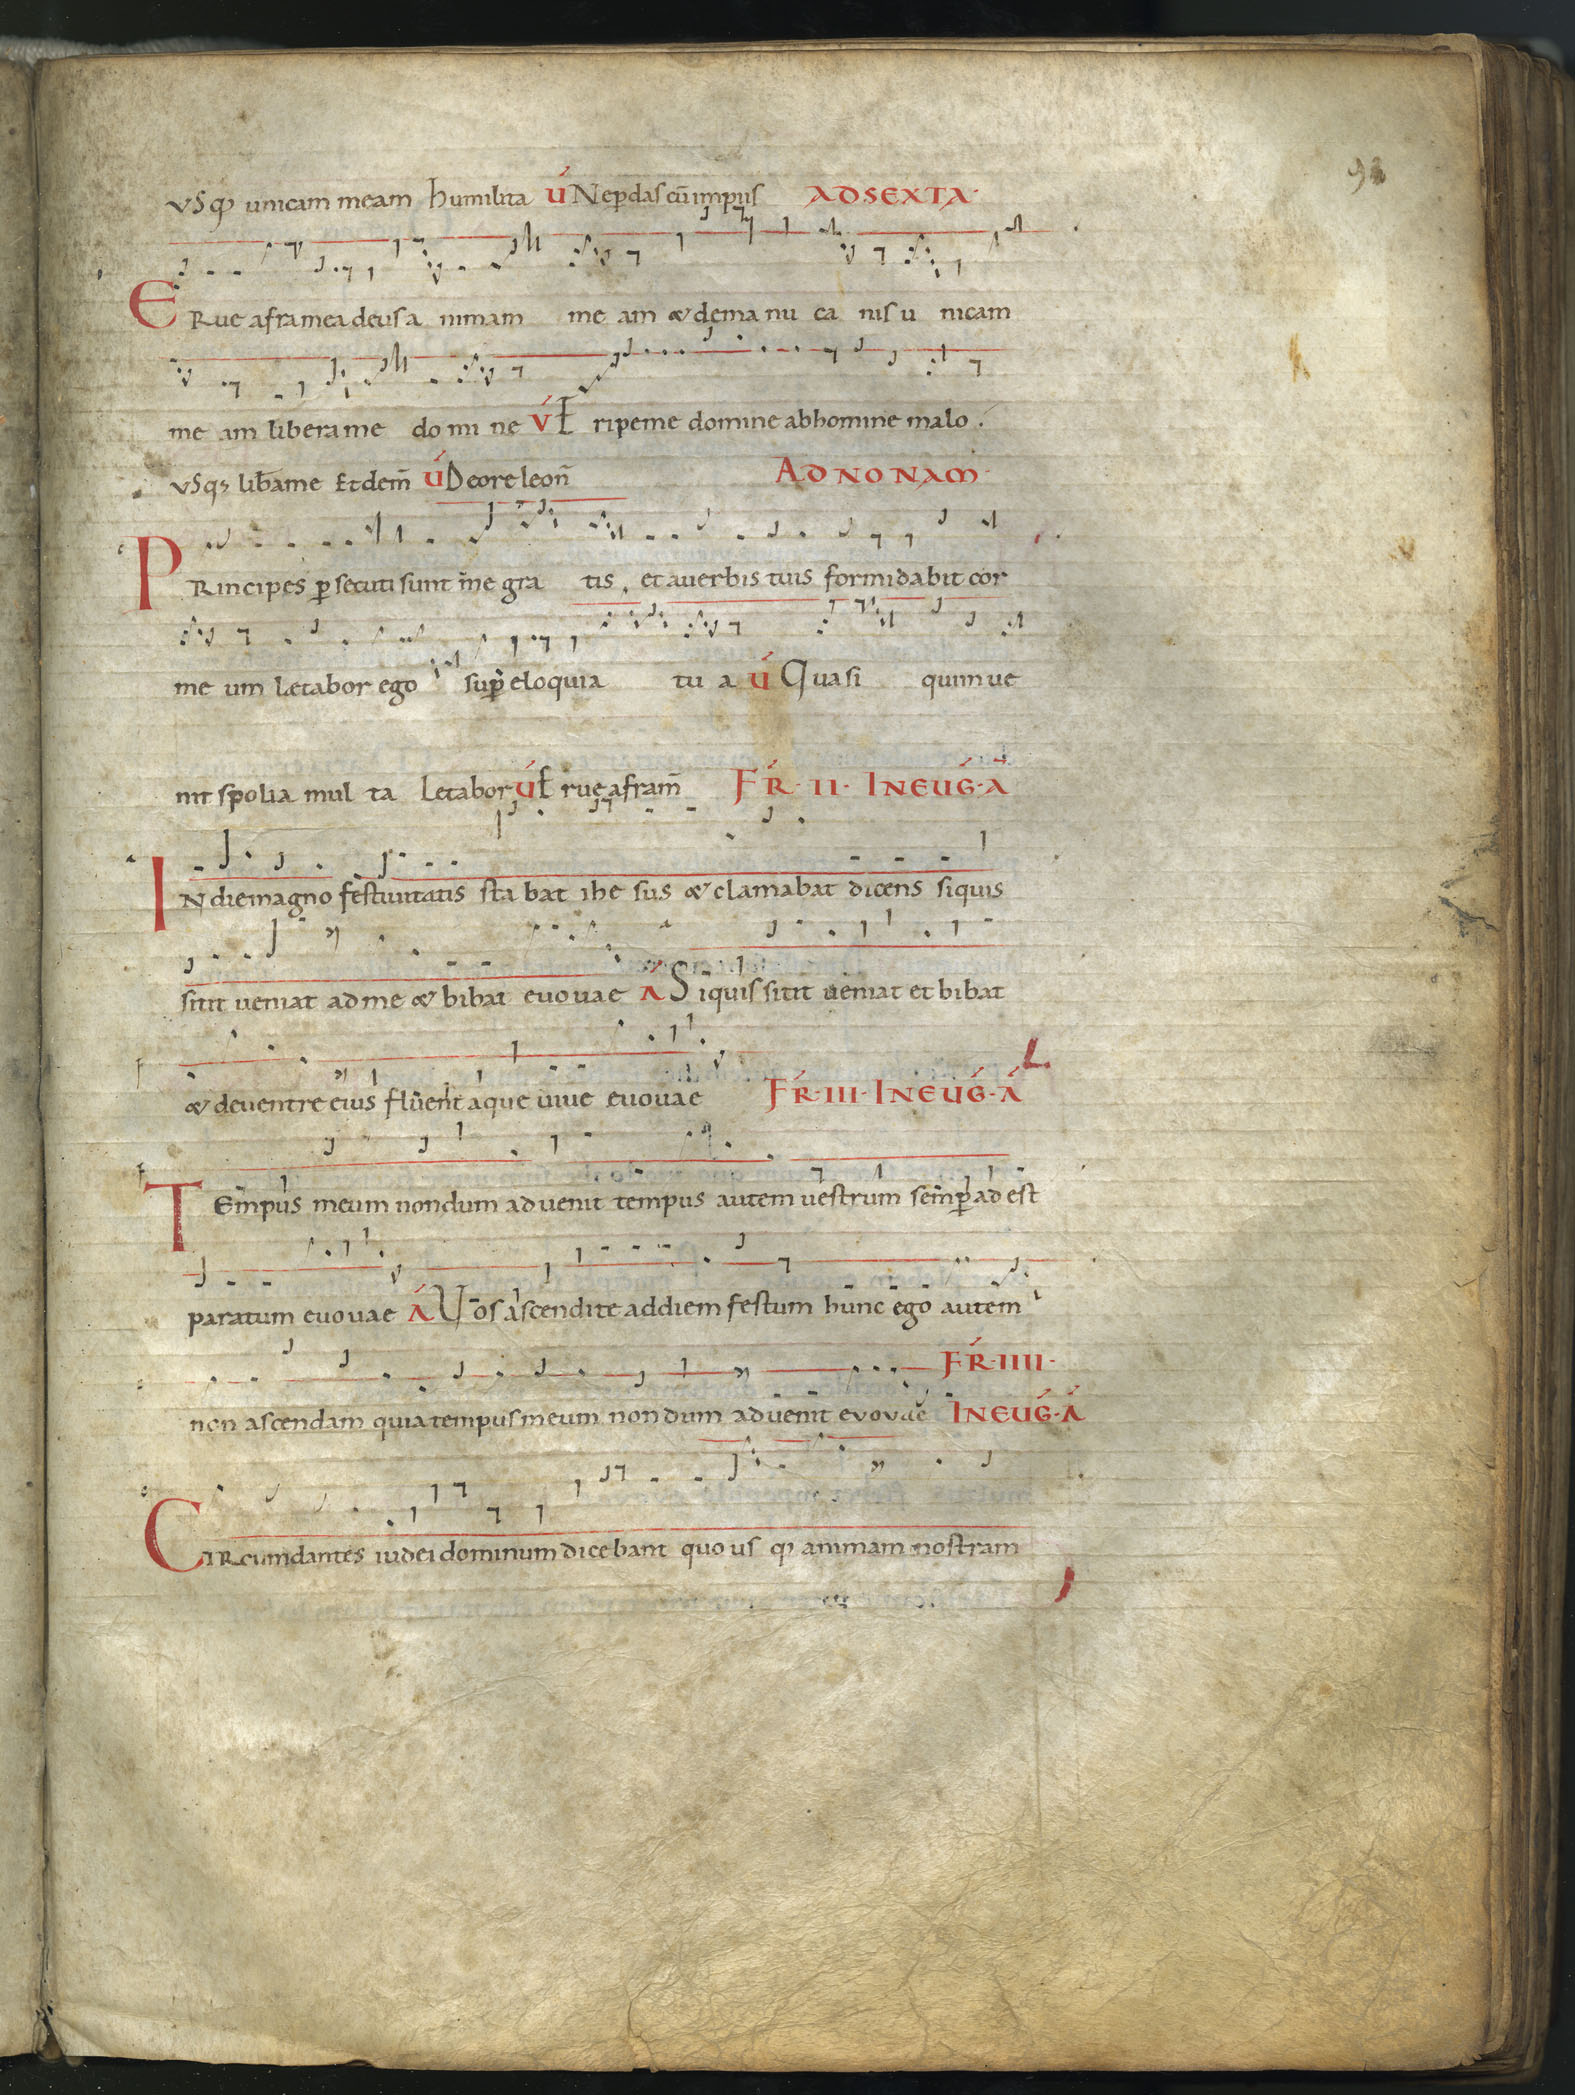 93
vsq; unicam meam humilita V́ Nep̱das cū impiis ADSEXTA·
ERue aframea deus a nimam me am & dema nu ca nis u nicam
me am libera me do mi ne V́ E ripeme domine abhomine malo.
vsq; lib̄ame Et dem̄ V́ Deore leon̄ AD NONAM·
PRincipes p̱secuti sunt me gra tis, et averbis tuis formidabit cor
me um Letabor ego sup̱ eloquia tu a V́ Quasi qui inue
nit spolia mul ta Letabor V́ E rue afram̄ FR̄· II· IN EUḠ·A
IN die magno festiuitatis sta bat ihe sus & clamabat dicens siquis
sitit ueniat ad me & bibat euouae Á Siquis sitit ueniat et bibat
& deuentre eius fluent aque uiue euouae FR̄·III·IN EUḠ·Á
TEmpus meum nondum aduenit tempus autem uestrum semp̱ ad est
paratum euouae Á Vos ascendite addiem festum hunc ego autem
non ascendam quia tempus meum non dum aduenit euouae FR̄·IIII·
IN EUḠ·Á
CIRcumdantes iudei dominum dicebant quo us q; animam nostram